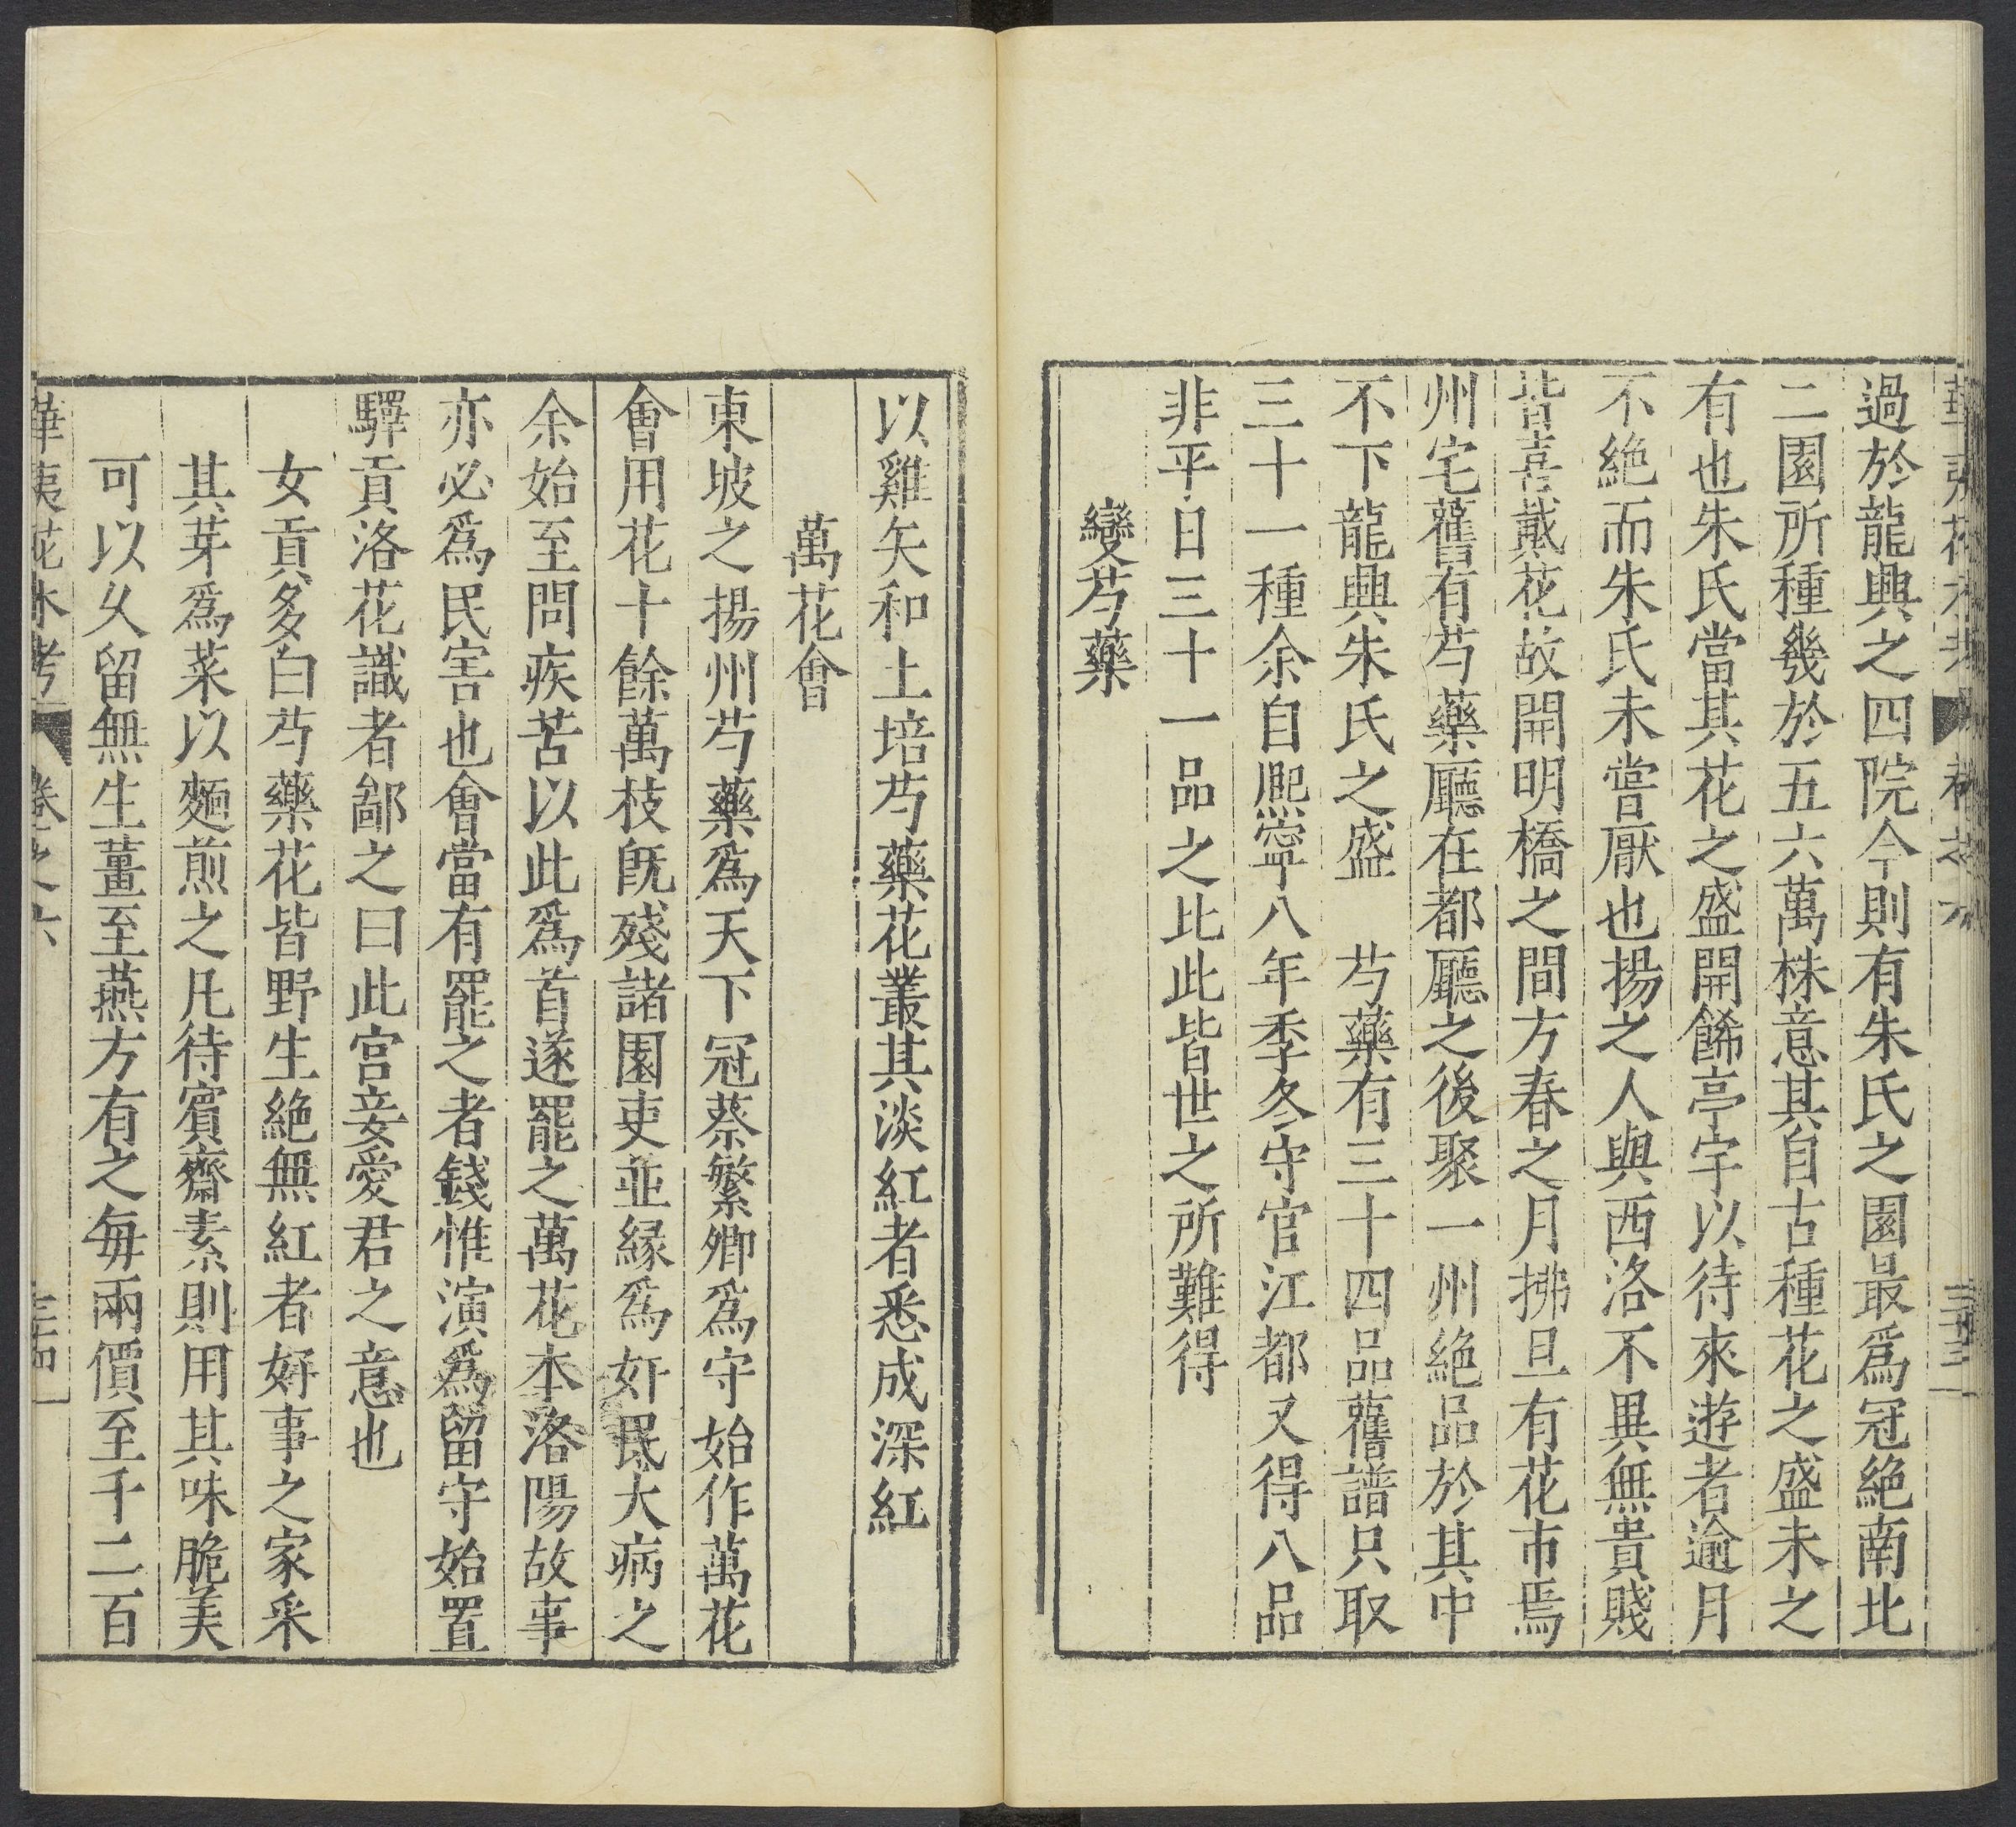 過於龍興之四院今則有朱氏之園最爲冠絶南北
二園所種幾於五六萬株意其自古種花之盛未之
有也朱氏當其花之盛開餙亭宇以待來遊者逾月
不絶而朱氏未嘗厭也揚之人與西洛不異無貴賤
皆喜戴花故開明橋之間方春之月拂旦有花市焉
州宅舊有芍藥廳在都廳之後聚一州絶品於其中
不下龍興朱氏之盛　芍藥有三十四品舊譜只取
三十一種余自熈寧八年季冬守官江都又得八品
非平日三十一品之比此皆世之所難得
變芍藥
以雞矢和土培芍藥花叢其淡紅者悉成深紅
萬花會
東坡之揚州芍藥爲天下冠蔡繁卿爲守始作萬花
會用花十餘萬枝旣殘諸園吏並緣爲奸民大病之
余始至問疾苦以此爲首遂罷之萬花本洛陽故事
亦必爲民害也會當有罷之者錢惟演爲留守始置
驛貢洛花識者鄙之曰此宫妾愛君之意也
女貢多白芍藥花皆野生絶無紅者好事之家采
其芽爲菜以麵煎之凡待賓齋素則用其味脆美
可以久留無生薑至燕方有之每兩價至千二百
華夷花木考
卷之六
三十四